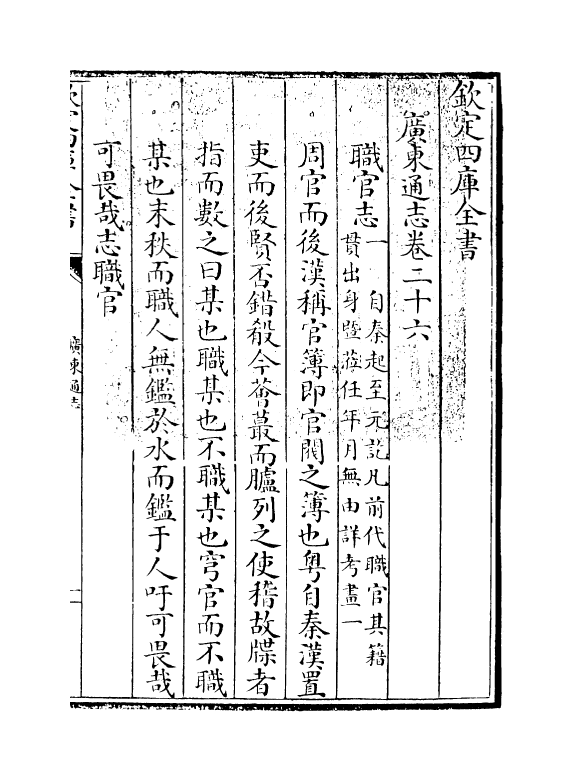 欽定四庫全書
廣東通志卷二十六
職官志一
自秦起至元訖凡前代職官其籍
貫出身暨蒞任年月無由詳考畫一
周官而後漢稱官簿即官閥之簿也粤自秦漢置
吏而後賢否錯殽今薈蕞而臚列之使稽故牒者
指而數之曰某也職某也不職某也穹官而不職
某也末秩而職人無鑑於水而鑑于人吁可畏哉
可畏哉志職官
廣東通志
一